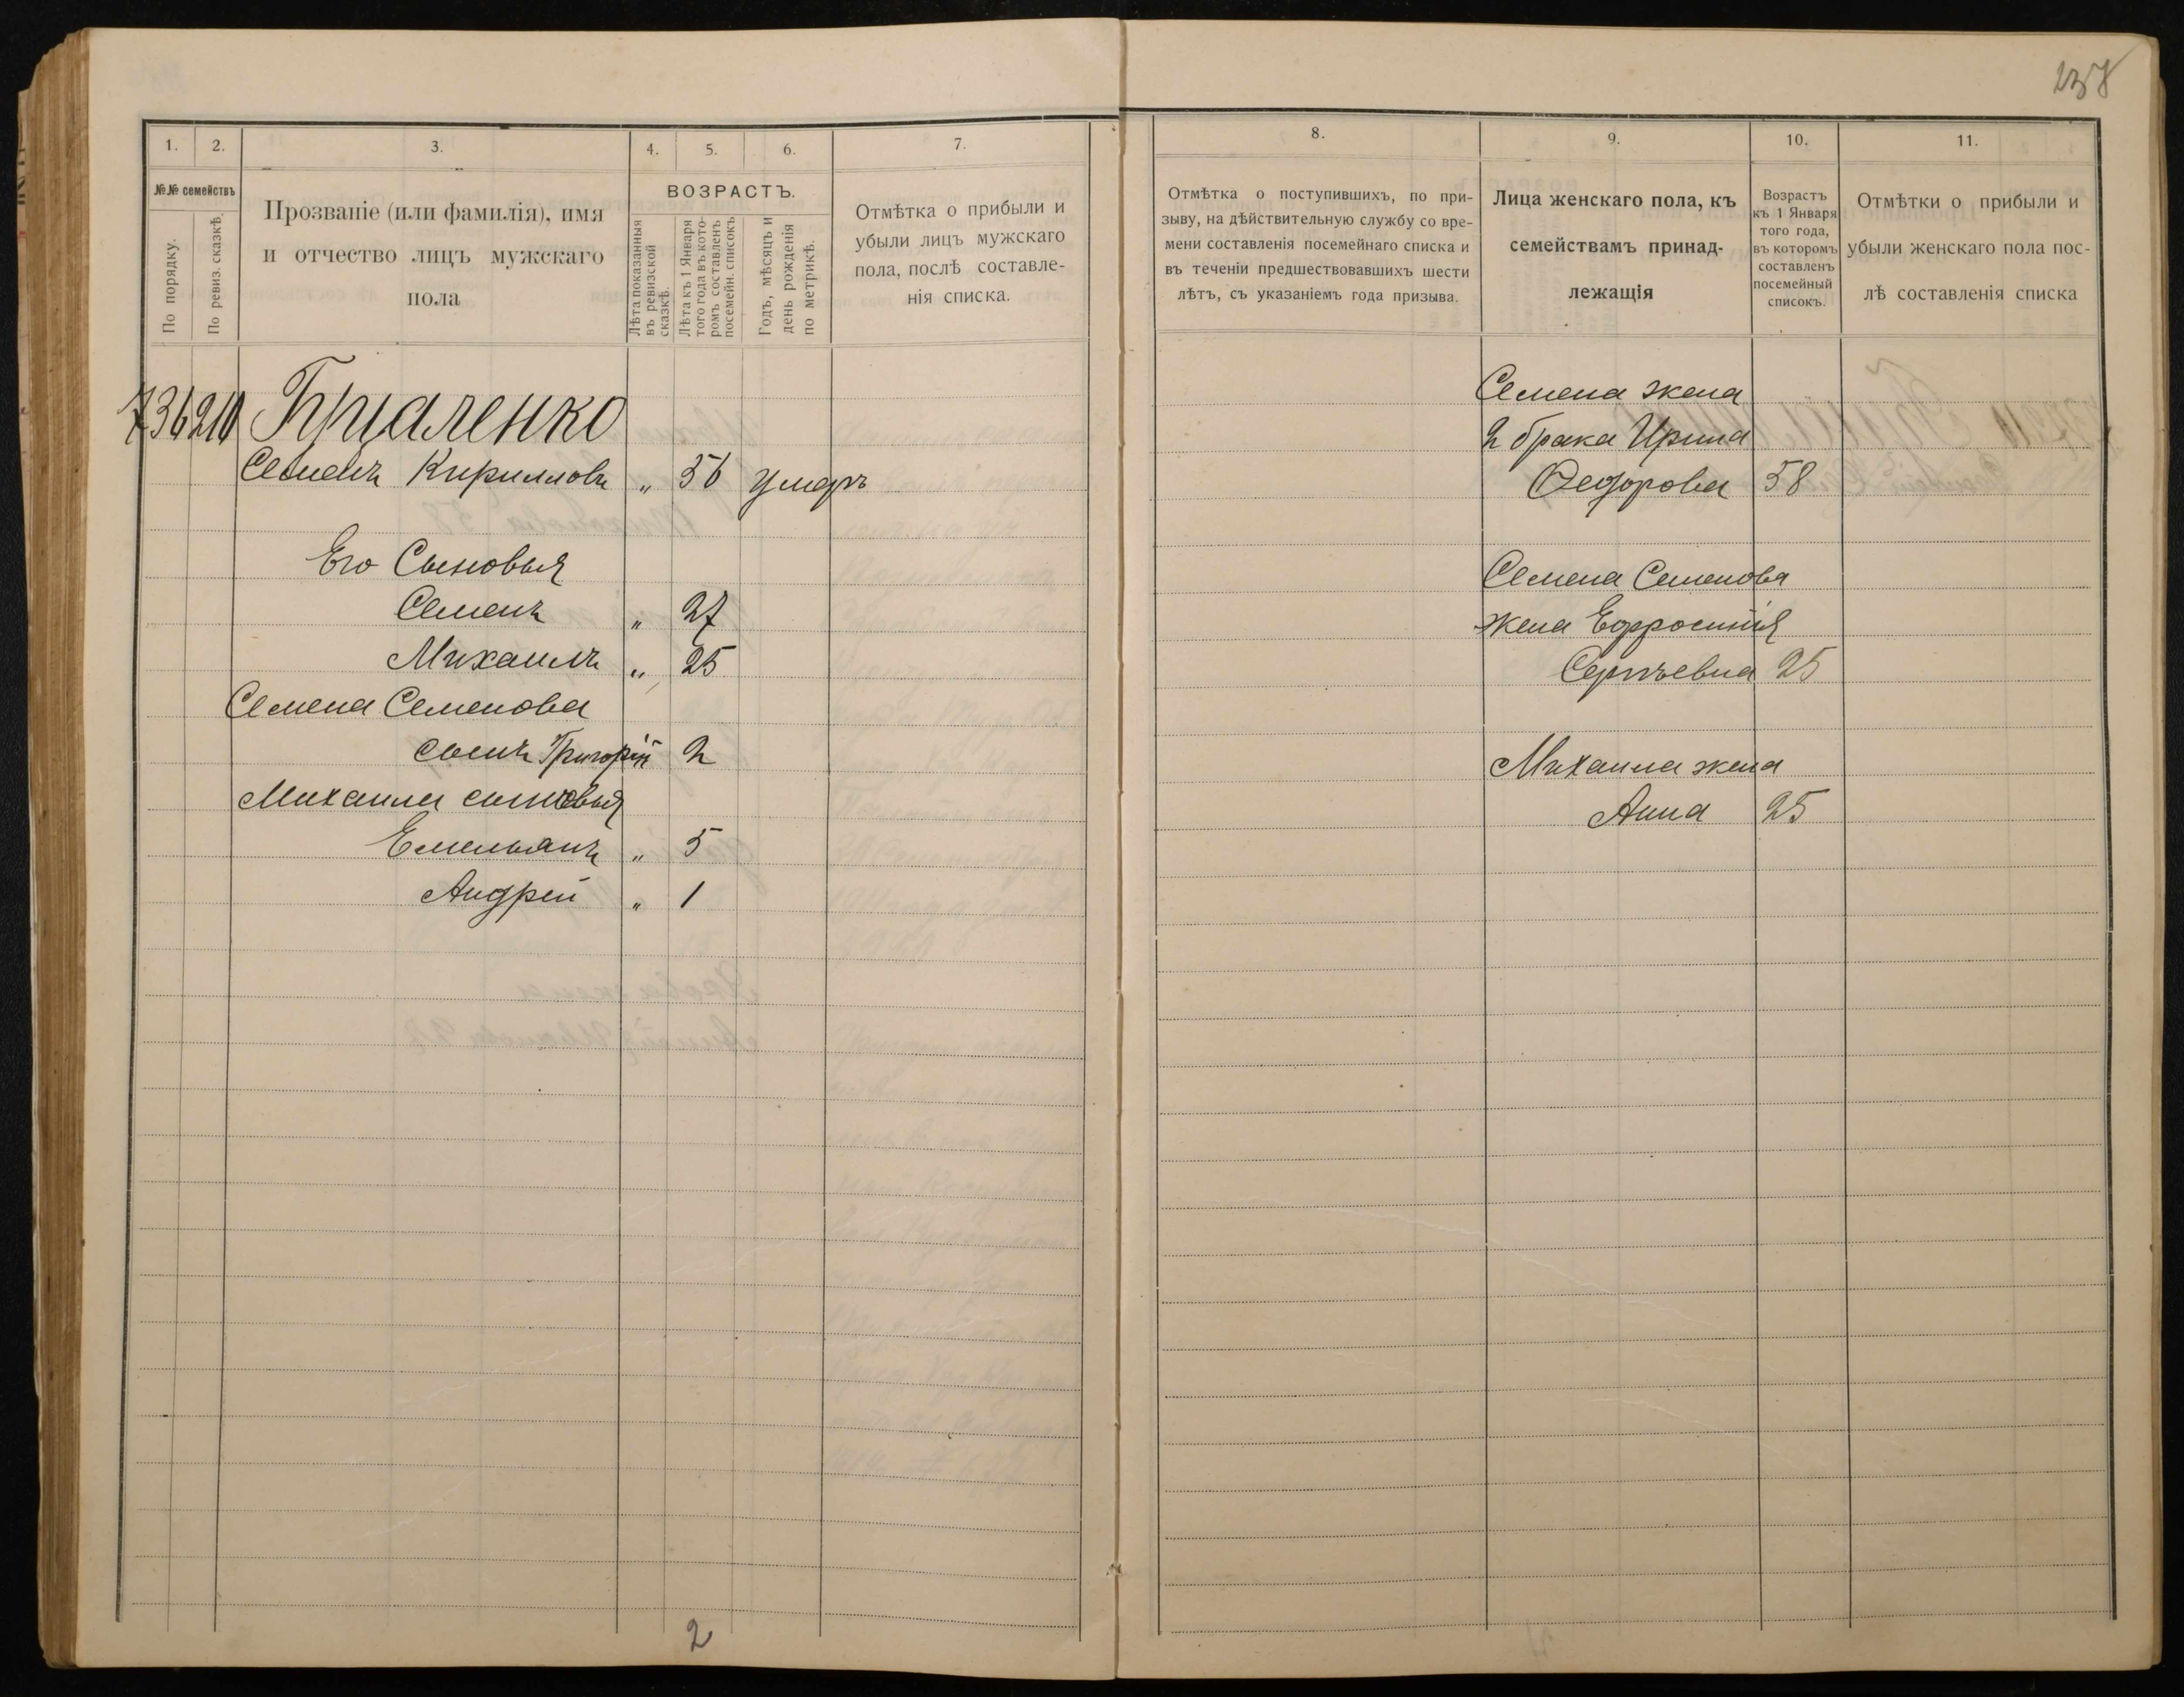 238
1. 2. 3. 4. 5. 6. 7.
№№ семействъ
По порядку.
По ревиз. сказкѣ.
Прозваніе (или фамилія), имя
и отчество лицъ мужскаго
пола
ВОЗРАСТЪ.
Лѣта показанныя
въ ревизской
сказкѣ.
Лѣта къ 1 Января
того года въ кото-
ромъ составленъ
посемейн. списокъ
Годъ, мѣсяцъ и
день рожденія
по метрикѣ.
Отмѣтка о прибыли и
убыли лицъ мужскаго
пола, послѣ составле-
нія списка.
736 210
Семенъ Кирилловъ „ 56 умеръ
Его Сыновья
Семенъ „ 27
Михаилъ „ 25
Семена Семенова
сынъ Григорій 2
Михаила сыновья
Емельянъ „ 5
Андрей „ 1
2
8. 9. 10. 11.
Отмѣтка о поступившихъ, по при-
зыву, на дѣйствительную службу со вре-
мени составленія посемейнаго списка и
въ теченіи предшествовавшихъ шести
лѣтъ, съ указаніемъ года призыва.
Лица женскаго пола, къ
семействамъ принад-
лежащія
Возрастъ
къ 1 Января
того года,
въ которомъ
составленъ
посемейный
списокъ.
Отмѣтки о прибыли и
убыли женскаго пола пос-
лѣ составленія списка
Семена жена
2 брака Ирина
Федорова 58
Семена Семенова
жена Ефросинія
Сергѣевна 25
Михаила жена
Анна 25